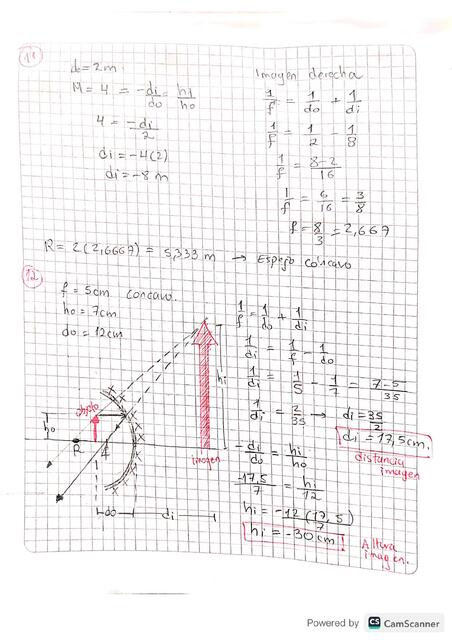 11
d = 2m.
M = 4 = -di/do = hi/ho
4 = -di/2
di = -4(2)
di = -8 m
Imagen derecha
1/f = 1/do + 1/di
1/f = 1/2 - 1/8
1/f = 8-2/16
1/f = 6/16 = 3/8
f = 8/3 = 2,667
R = 2(2,6667) = 5,333 m → Espejo cóncavo
12
f = 5cm concavo.
ho = 7cm
do = 12cm
1/f = 1/do + 1/di
1/di = 1/f - 1/do
1/di = 1/5 - 1/7 = 7-5/35
1/di = 2/35 → di = 35/2
di = 17,5cm.
distancia
imagen
-di/do = hi/ho
-17,5/7 = hi/12
hi = -12(17,5)/7
hi = -30cm!
Altura
imagen.
objeto
ho
R
f
hi
imagen
do
di
Powered by CS CamScanner